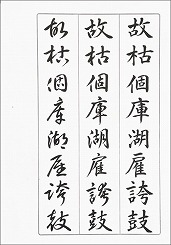 故枯個庫湖雇誇鼓
故枯個庫湖雇誇鼓
故枯個庫湖雇誇鼓